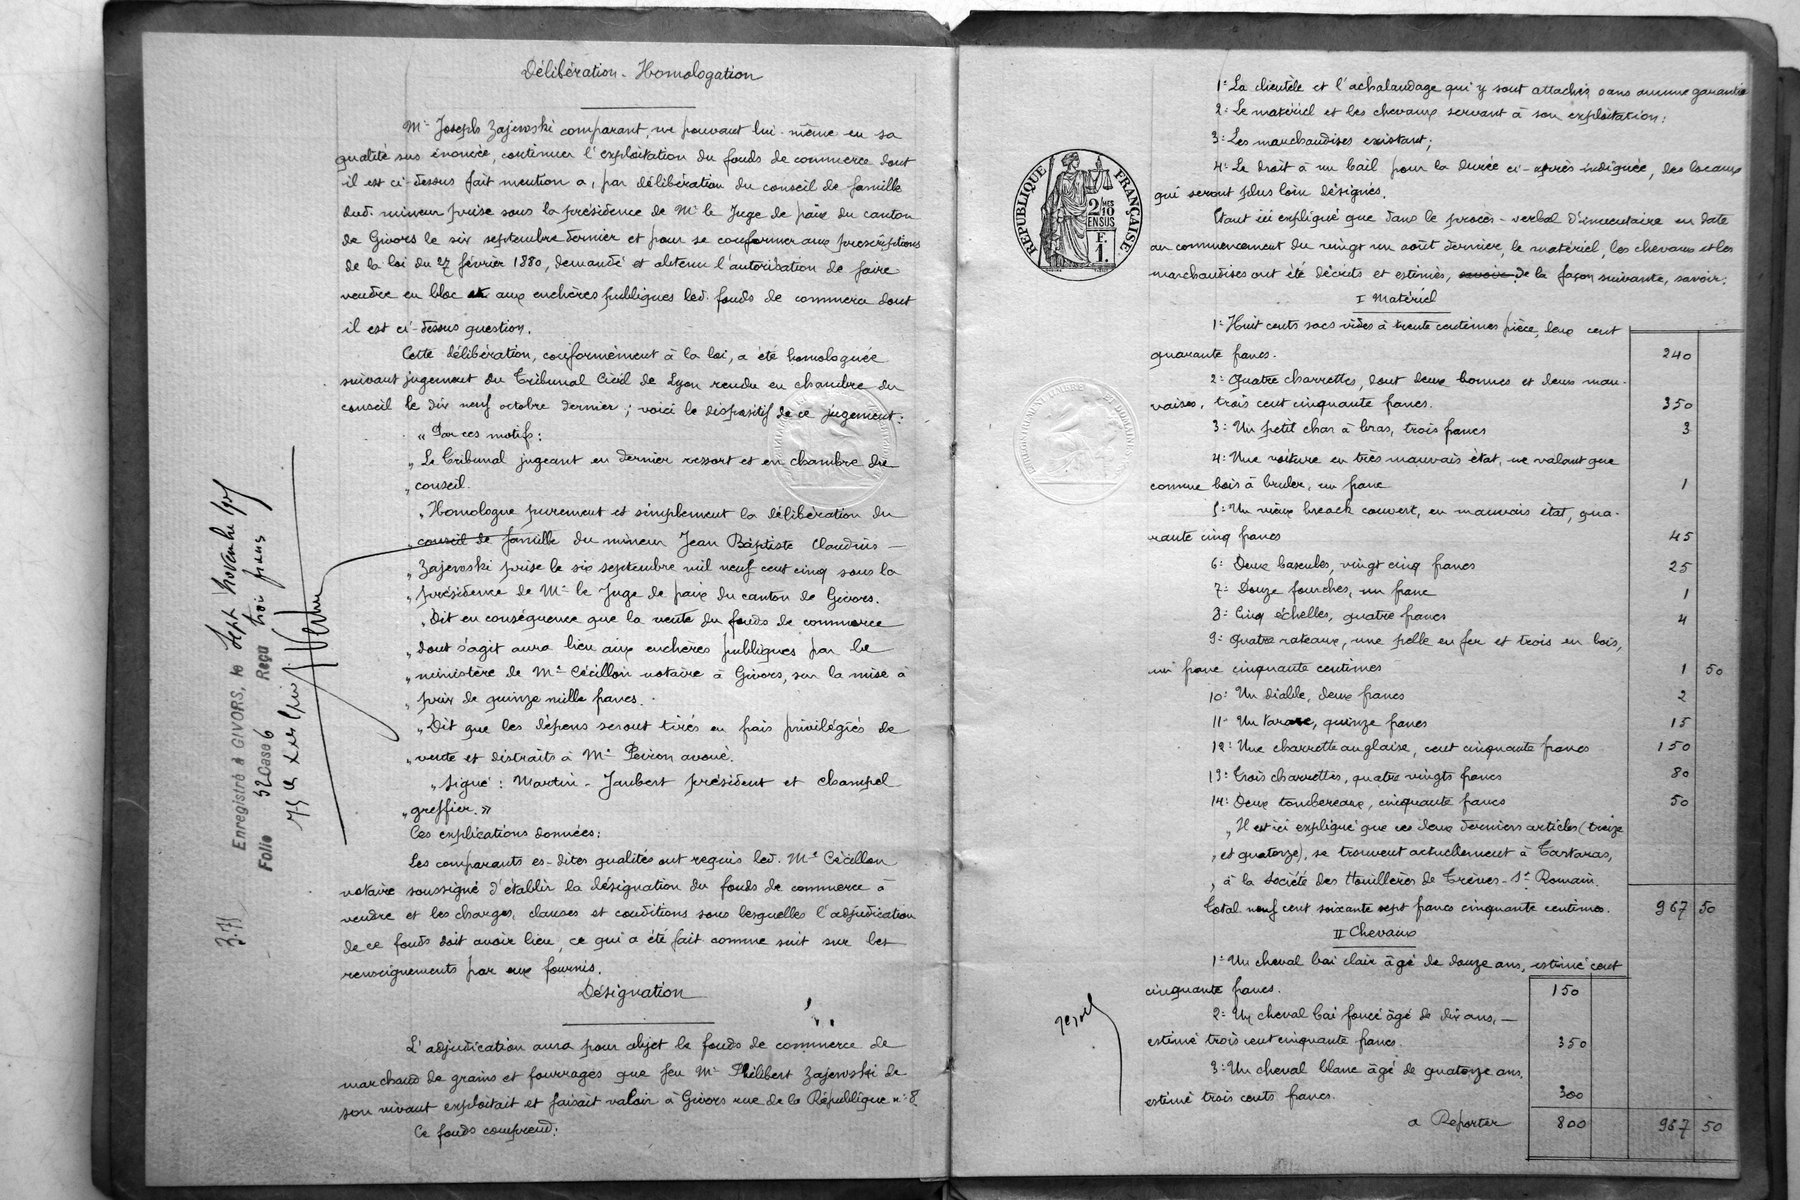 Délibération - Homologation
Mr Joseph Zajewski comparant, ne pouvant lui-même en sa
qualité sus énoncée, continuer l'exploitation du fonds de commerce dont
il est ci-dessus fait mention a, par délibération du conseil de famille
dud. mineur prise sous la présidence de Mr le Juge de paix du canton
de Givors le six septembre dernier et pour se conformer aux prescriptions
de la loi du 27 février 1880, demandé et obtenu l'autorisation de faire
vendre en bloc aux enchères publiques led. fonds de commerce dont
il est ci-dessus question.
Cette délibération, conformément à la loi, a été homologuée
suivant jugement du Tribunal Civil de Lyon rendu en chambre du
conseil le dix neuf octobre dernier ; voici le dispositif de ce jugement :
" Par ces motifs :
" Le Tribunal jugeant en dernier ressort et en chambre du
" conseil.
" Homologue purement et simplement la délibération du
" conseil de famille du mineur Jean Baptiste Claudius —
" Zajewski prise le six septembre mil neuf cent cinq sous la
" présidence de Mr le Juge de paix du canton de Givors.
" Dit en conséquence que la vente du fonds de commerce
" dont s'agit aura lieu aux enchères publiques par le
" ministère de Me Cécillon notaire à Givors, sur la mise à
" prix de quinze mille francs.
" Dit que les dépens seront tirés en frais privilégiés de
" vente et distraits à Me Peiron avoué.
" Signé : Martin - Jaubert président et Champel
" greffier. "
Ces explications données :
Les comparants es-dites qualités ont requis led. Me Cécillon
notaire soussigné d'établir la désignation du fonds de commerce à
vendre et les charges, clauses et conditions sous lesquelles l'adjudication
de ce fonds doit avoir lieu, ce qui a été fait comme suit sur les
renseignements par eux fournis.
Désignation
L'adjudication aura pour objet le fonds de commerce de
marchand de grains et fourrages que feu Mr Philibert Zajewski de
son vivant exploitait et faisait valoir à Givors rue de la République n: 8
Ce fonds comprend :
Enregistré à GIVORS, le sept Novembre 1905
Folio 52 Case 6 Reçu trois francs
3.75
1: La clientèle et l'achalandage qui y sont attachés sans aucune garantie
2: Le matériel et les chevaux servant à son exploitation ;
3: Les marchandises existant ;
4: Le droit à un bail pour la durée ci-après indiquée, des locaux
qui seront plus loin désignés.
Etant ici expliqué que dans le procès-verbal d'inventaire en date
au commencement du vingt un août dernier, le matériel, les chevaux et les
marchandises ont été décrits et estimés, savoir de la façon suivante, savoir :
I Matériel
1: Huit cents sacs vides à trente centimes pièce, deux cent
quarante francs. 240
2: Quatre charrettes, dont deux bonnes et deux mau-
vaises, trois cent cinquante francs. 350
3: Un petit char à bras, trois francs 3
4: Une voiture en très mauvais état, ne valant que
comme bois à bruler, un franc 1
5: Un vieux breack couvert, en mauvais état, qua-
rante cinq francs 45
6: Deux bascules, vingt cinq francs 25
7: Douze fourches, un franc 1
8: Cinq échelles, quatre francs 4
9: Quatre rateaux, une pelle en fer et trois en bois,
un franc cinquante centimes 1 50
10: Un diable, deux francs 2
11: Un tarare, quinze francs 15
12: Une charrette anglaise, cent cinquante francs 150
13: Trois charrettes, quatre vingts francs 80
14: Deux tombereaux, cinquante francs 50
" Il est ici expliqué que ces deux derniers articles (treize
" et quatorze), se trouvent actuellement à Tartaras,
" à la Société des Houillères de Trèves - St Romain.
Total neuf cent soixante sept francs cinquante centimes. 967 50
II Chevaux
1: Un cheval bai clair âgé de douze ans, estimé cent
cinquante francs. 150
2: Un cheval bai foncé âgé de dix ans, —
estimé trois cent cinquante francs. 350
3: Un cheval blanc âgé de quatorze ans,
estimé trois cents francs. 300
a Reporter 800 967 50
RÉPUBLIQUE FRANÇAISE.
2/10MES
EN SUS
F.
1.